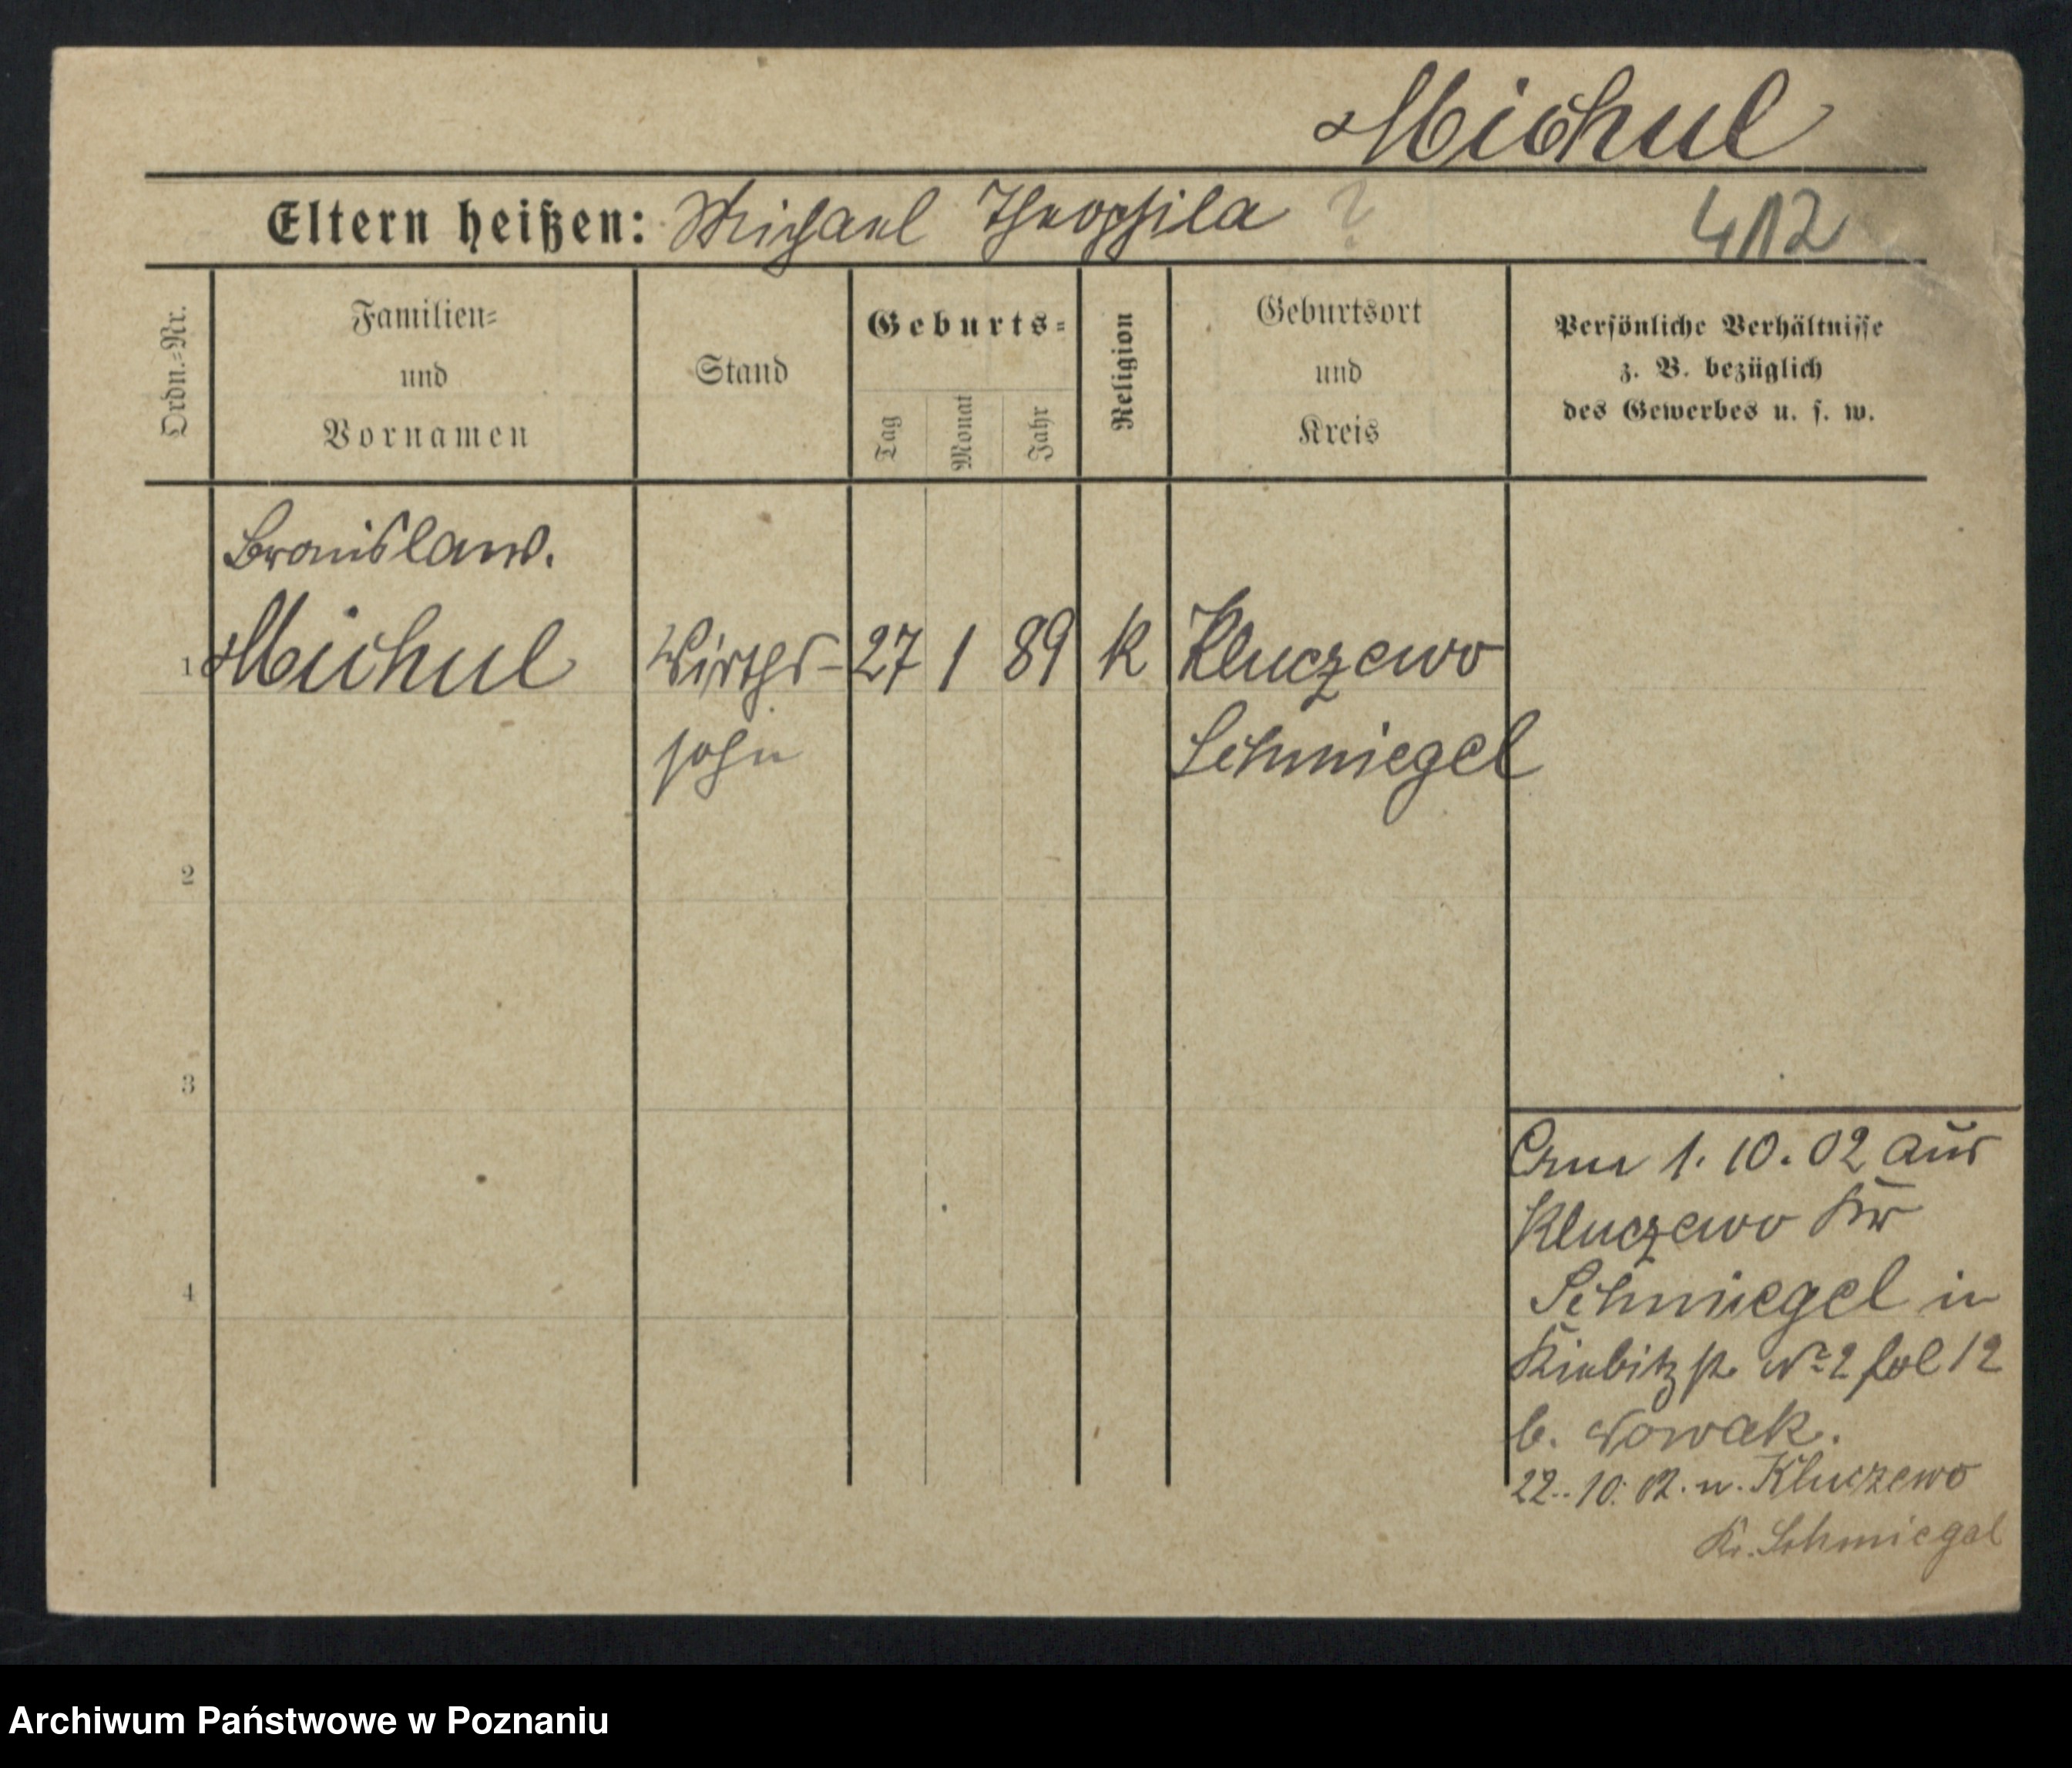 Michul
Eltern heißen: Michael Theophila ?
412
Ordn.-Nr.
Familien-
und
Vornamen
Stand
Geburts-
Tag
Monat
Jahr
Religion
Geburtsort
und
Kreis
Persönliche Verhältnisse
z. B. bezüglich
des Gewerbes u. s. w.
Bronislaw.
1 Michul Wirths- 27 1 89 k Kluczewo
sohn Schmiegel
2
3
4
1. 10. 02 aus
Kluczewo Kr
Schmiegel in
Kiebitzstr. No 2 fol 12
b. Nowak.
22. 10. 02. n. Kluczewo
Kr. Schmiegel
Archiwum Państwowe w Poznaniu